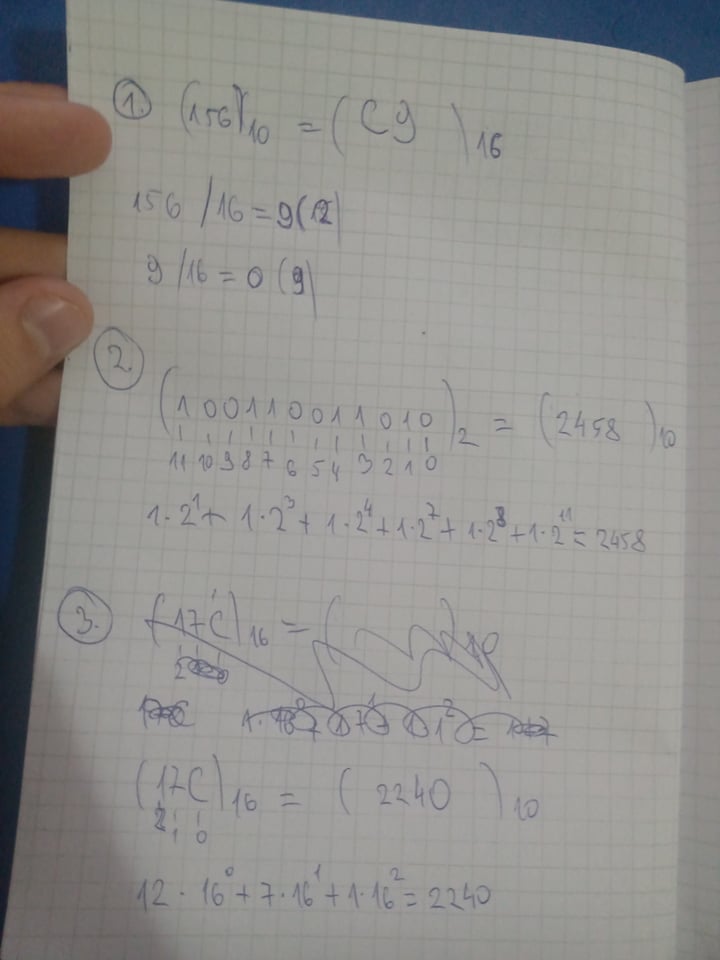 1. (156)10 = (C9)16
156 /16 = 9(12)
9 /16 = 0 (9)
2. (100110011010)2 = (2458)10
11 10 9 8 7 6 5 4 3 2 1 0
1·2¹ + 1·2³ + 1·2⁴ + 1·2⁷ + 1·2⁸ + 1·2¹¹ = 2458
3. (17C)16 =
(17C)16 = (2240)10
2 1 0
12 · 16⁰ + 7·16¹ + 1·16² = 2240